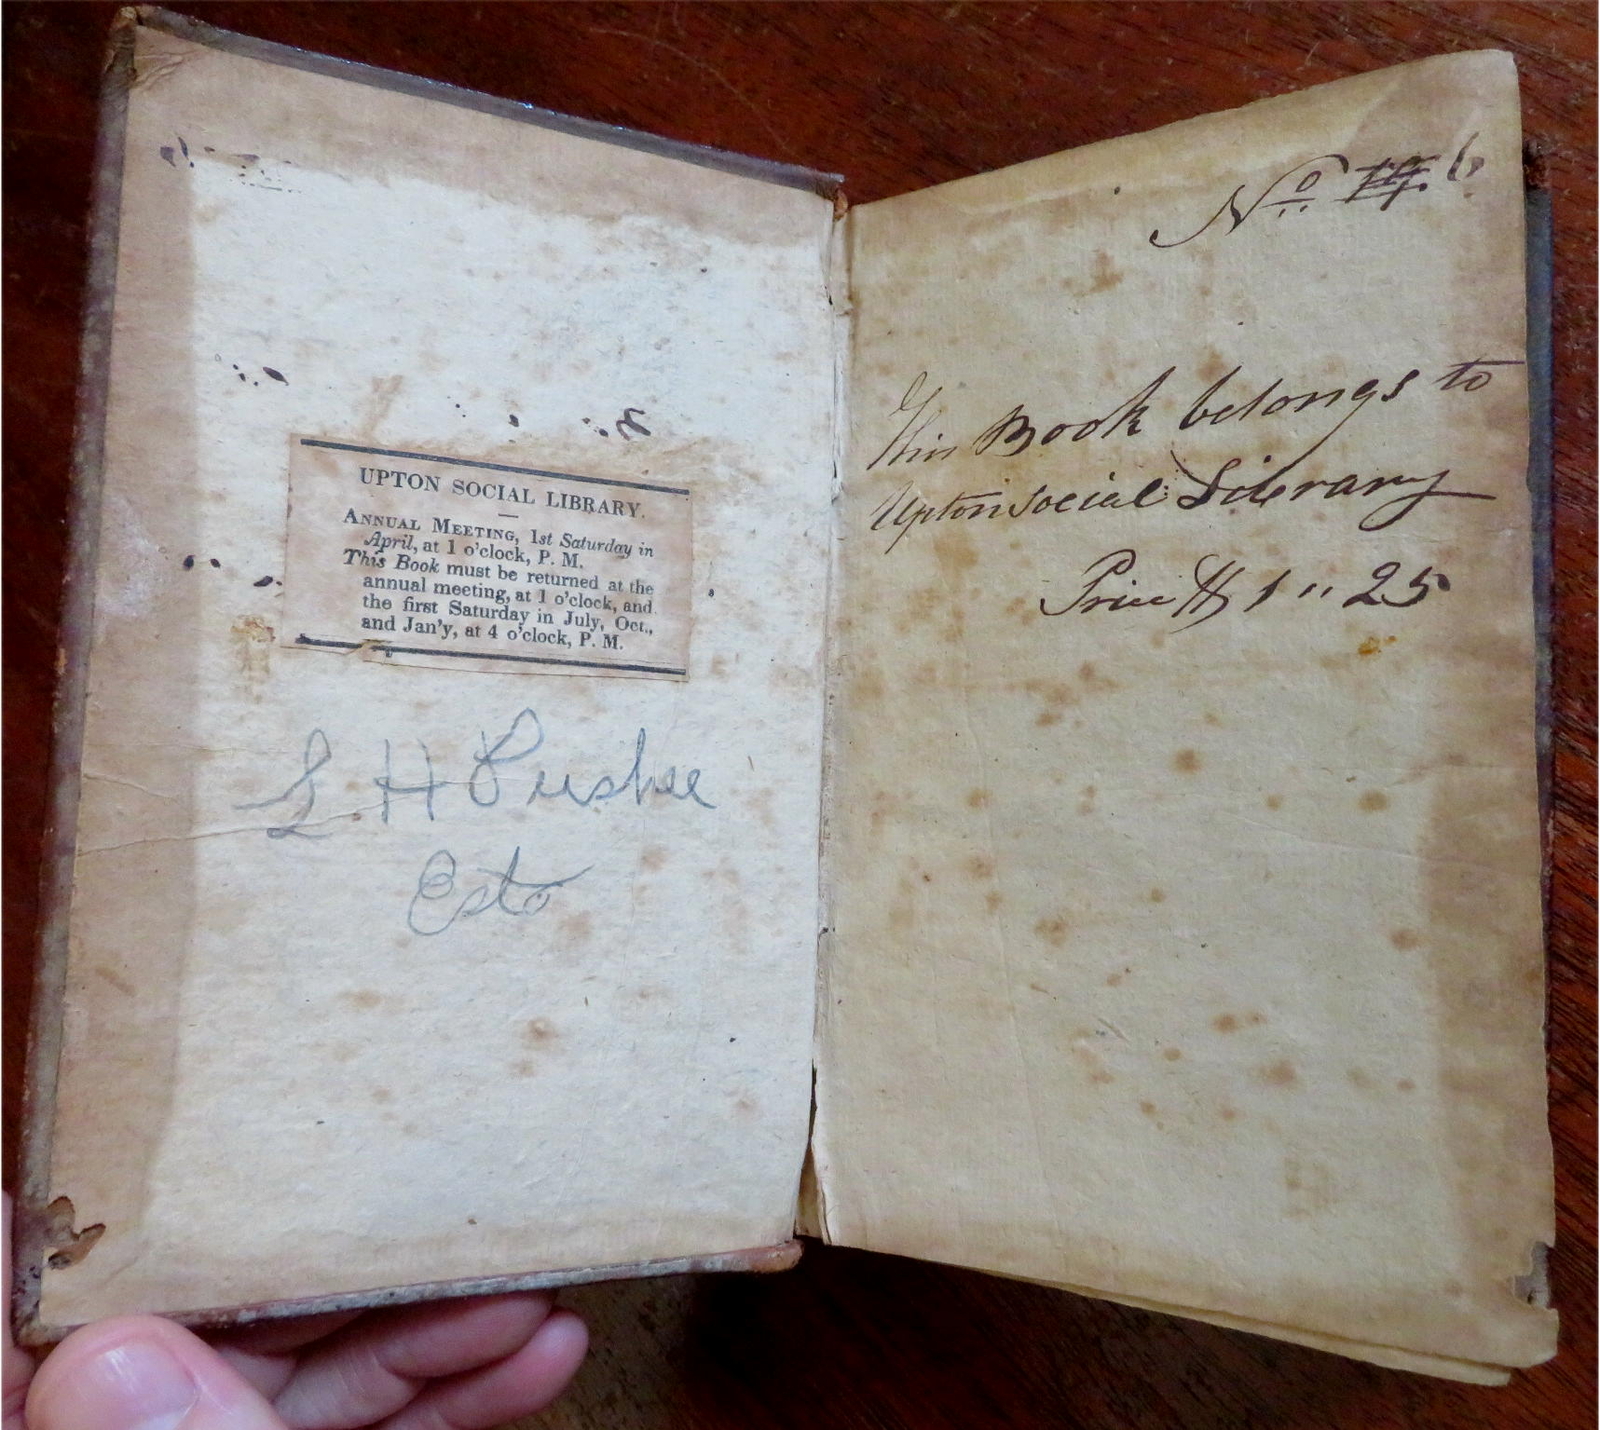 UPTON SOCIAL LIBRARY.
ANNUAL MEETING, 1st Saturday in
April, at 1 o'clock, P. M.
This Book must be returned at the
annual meeting, at 1 o'clock, and
the first Saturday in July, Oct.,
and Jan'y, at 4 o'clock, P. M.
H
Est
No. 6.
This Book belongs to
Upton social Library
Price $ 1 " 25